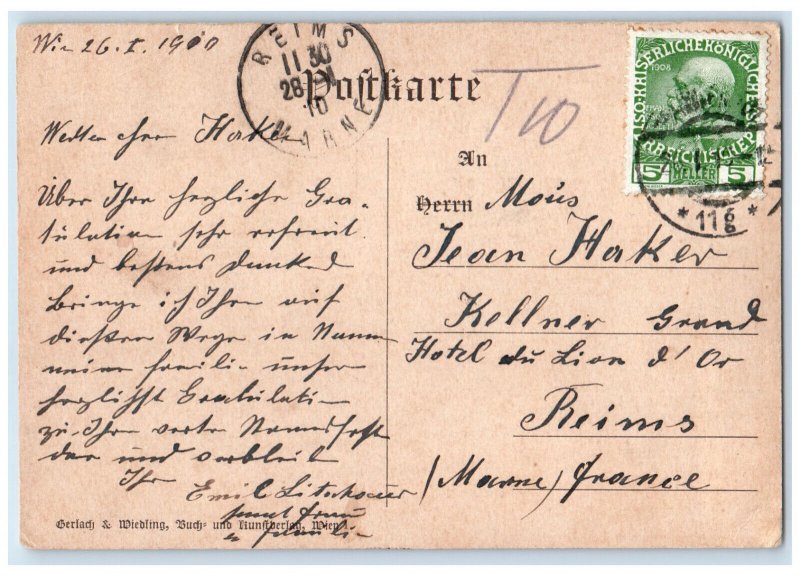 Wien 26. I. 1910
REIMS
11 30
28 -1
10
MARNE
Postkarte
T 10
KAISERLICHE KÖNIGLICHE
1908
5 HELLER 5
* 11g *
An
Herrn Mous
Jean Haker
Kellner Grand
Hotel du Lion d'Or
Reims
(Marne) france
Werter Herr Haker
Über Ihre herzliche Gra-
tulation sehr erfreut
und bestens dankend
bringe ich Ihnen auf
diesem Wege im Namen
meiner Familie unsere
herzlichste Gratulation
zu Ihrem werten Namensfeste
dar und verbleibe
Ihr
Emil
samt Frau
u Familie
Gerlach & Wiedling, Buch- und Kunstverlag, Wien I.